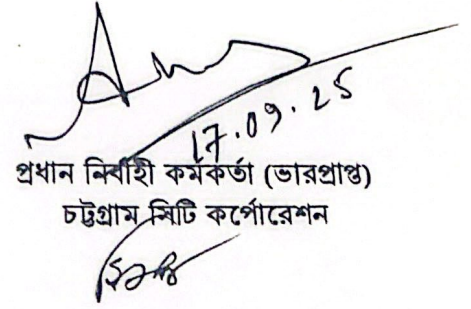 17.09.25
প্রধান নির্বাহী কর্মকর্তা (ভারপ্রাপ্ত)
চট্টগ্রাম সিটি কর্পোরেশন